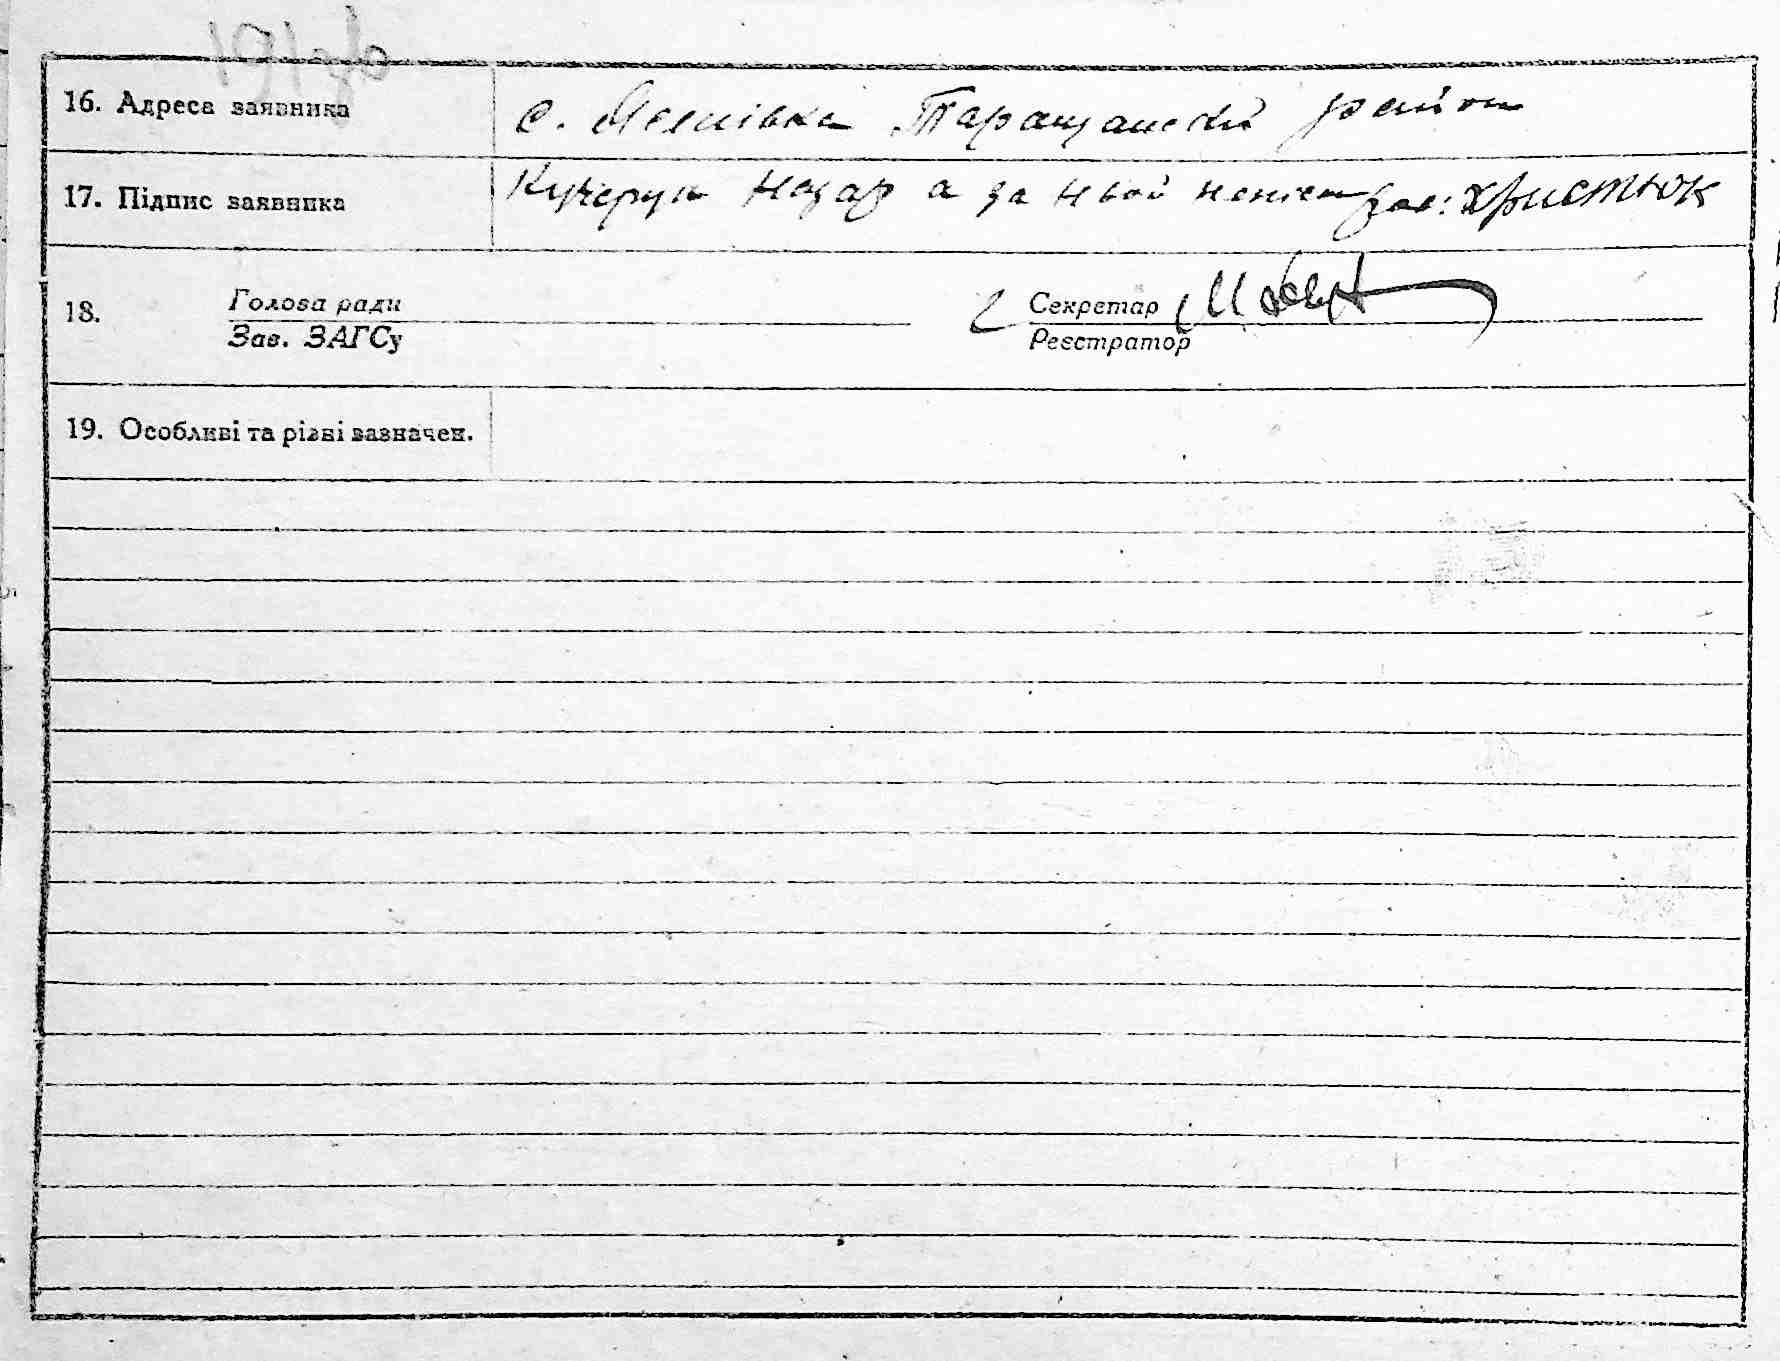 16. Адреса заявника с. Лісківка Таращанский район
17. Підпис заявника Кучерук Назар а за нього неписм рос: Христюк
18. Голова ради Секретар
Зав. ЗАГСу Реєстратор
19. Особливі та різні зазначен.